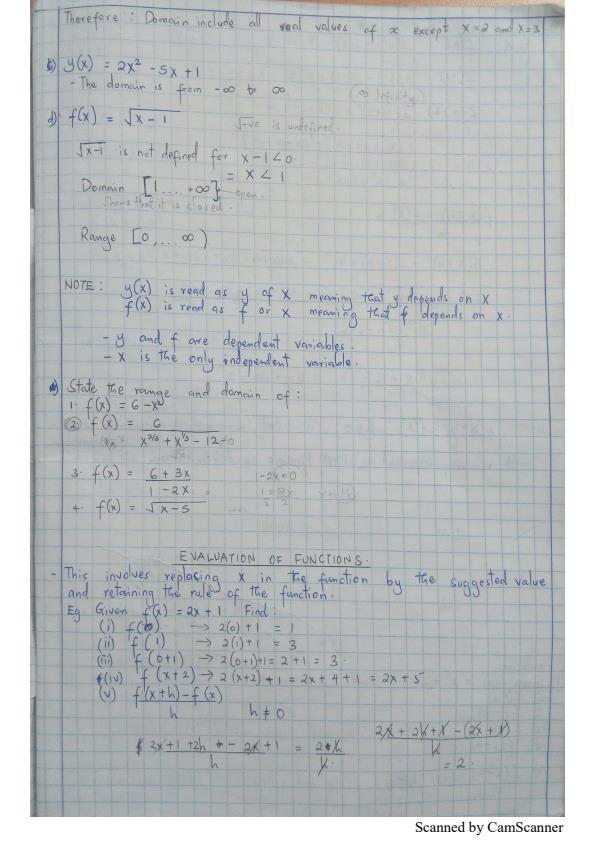 Therefore : Domain include all real values of x except x=2 and x=3
b) y(x) = 2x² - 5x + 1
- The domain is from -∞ to ∞ (∞ Infinity)
d) f(x) = √x - 1
√-ve is undefined.
√x-1 is not defined for x - 1 < 0
= x < 1
Domain [1 .... +∞} open
Shows that it is closed.
Range [0, ... ∞)
NOTE : y(x) is read as y of x meaning that y depends on x
f(x) is read as f or x meaning that f depends on x.
- y and f are dependent variables.
- x is the only independent variable.
State the range and domain of :
1. f(x) = 6 - x²
2. f(x) = 6
x^2/3 + x^1/3 - 12=0
3. f(x) = 6 + 3x 1-2x=0
1 - 2x
4. f(x) = √x - 5
EVALUATION OF FUNCTIONS.
- This involves replacing x in the function by the suggested value
and retaining the rule of the function.
Eg. Given f(x) = 2x + 1 Find :
(i) f(0) → 2(0) + 1 = 1
(ii) f(1) → 2(1) + 1 = 3
(iii) f(0+1) → 2(0+1)+1 = 2 + 1 = 3.
(iv) f(x+2) → 2(x+2) + 1 = 2x + 4 + 1 = 2x + 5
(v) f(x+h) - f(x)
h h ≠ 0
2x + 2h + 1 - (2x + 1)
h
2x + 1 + 2h - 2x + 1 = 2h
h h
= 2.
Scanned by CamScanner